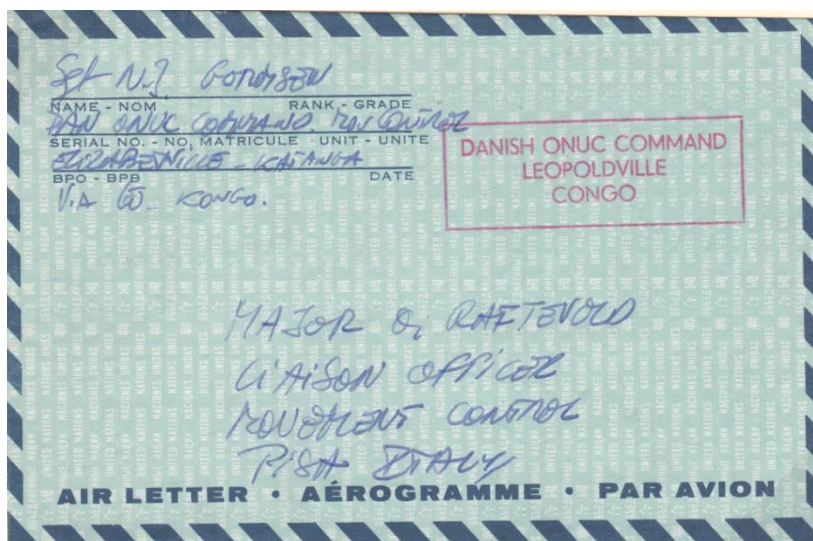 Sgt N.J.
NAME - NOM RANK - GRADE
DAN ONUC COMMAND. MOV CONTROL
SERIAL NO. - NO, MATRICULE - UNIT - UNITE
ELIZABETHVILLE - KATANGA
BPO - BPB DATE
VIA KONGO.
DANISH ONUC COMMAND
LEOPOLDVILLE
CONGO
MAJOR O, RAFTEVOLD
LIAISON OFFICER
MOVEMENT CONTROL
PISA ITALY
AIR LETTER • AÉROGRAMME • PAR AVION